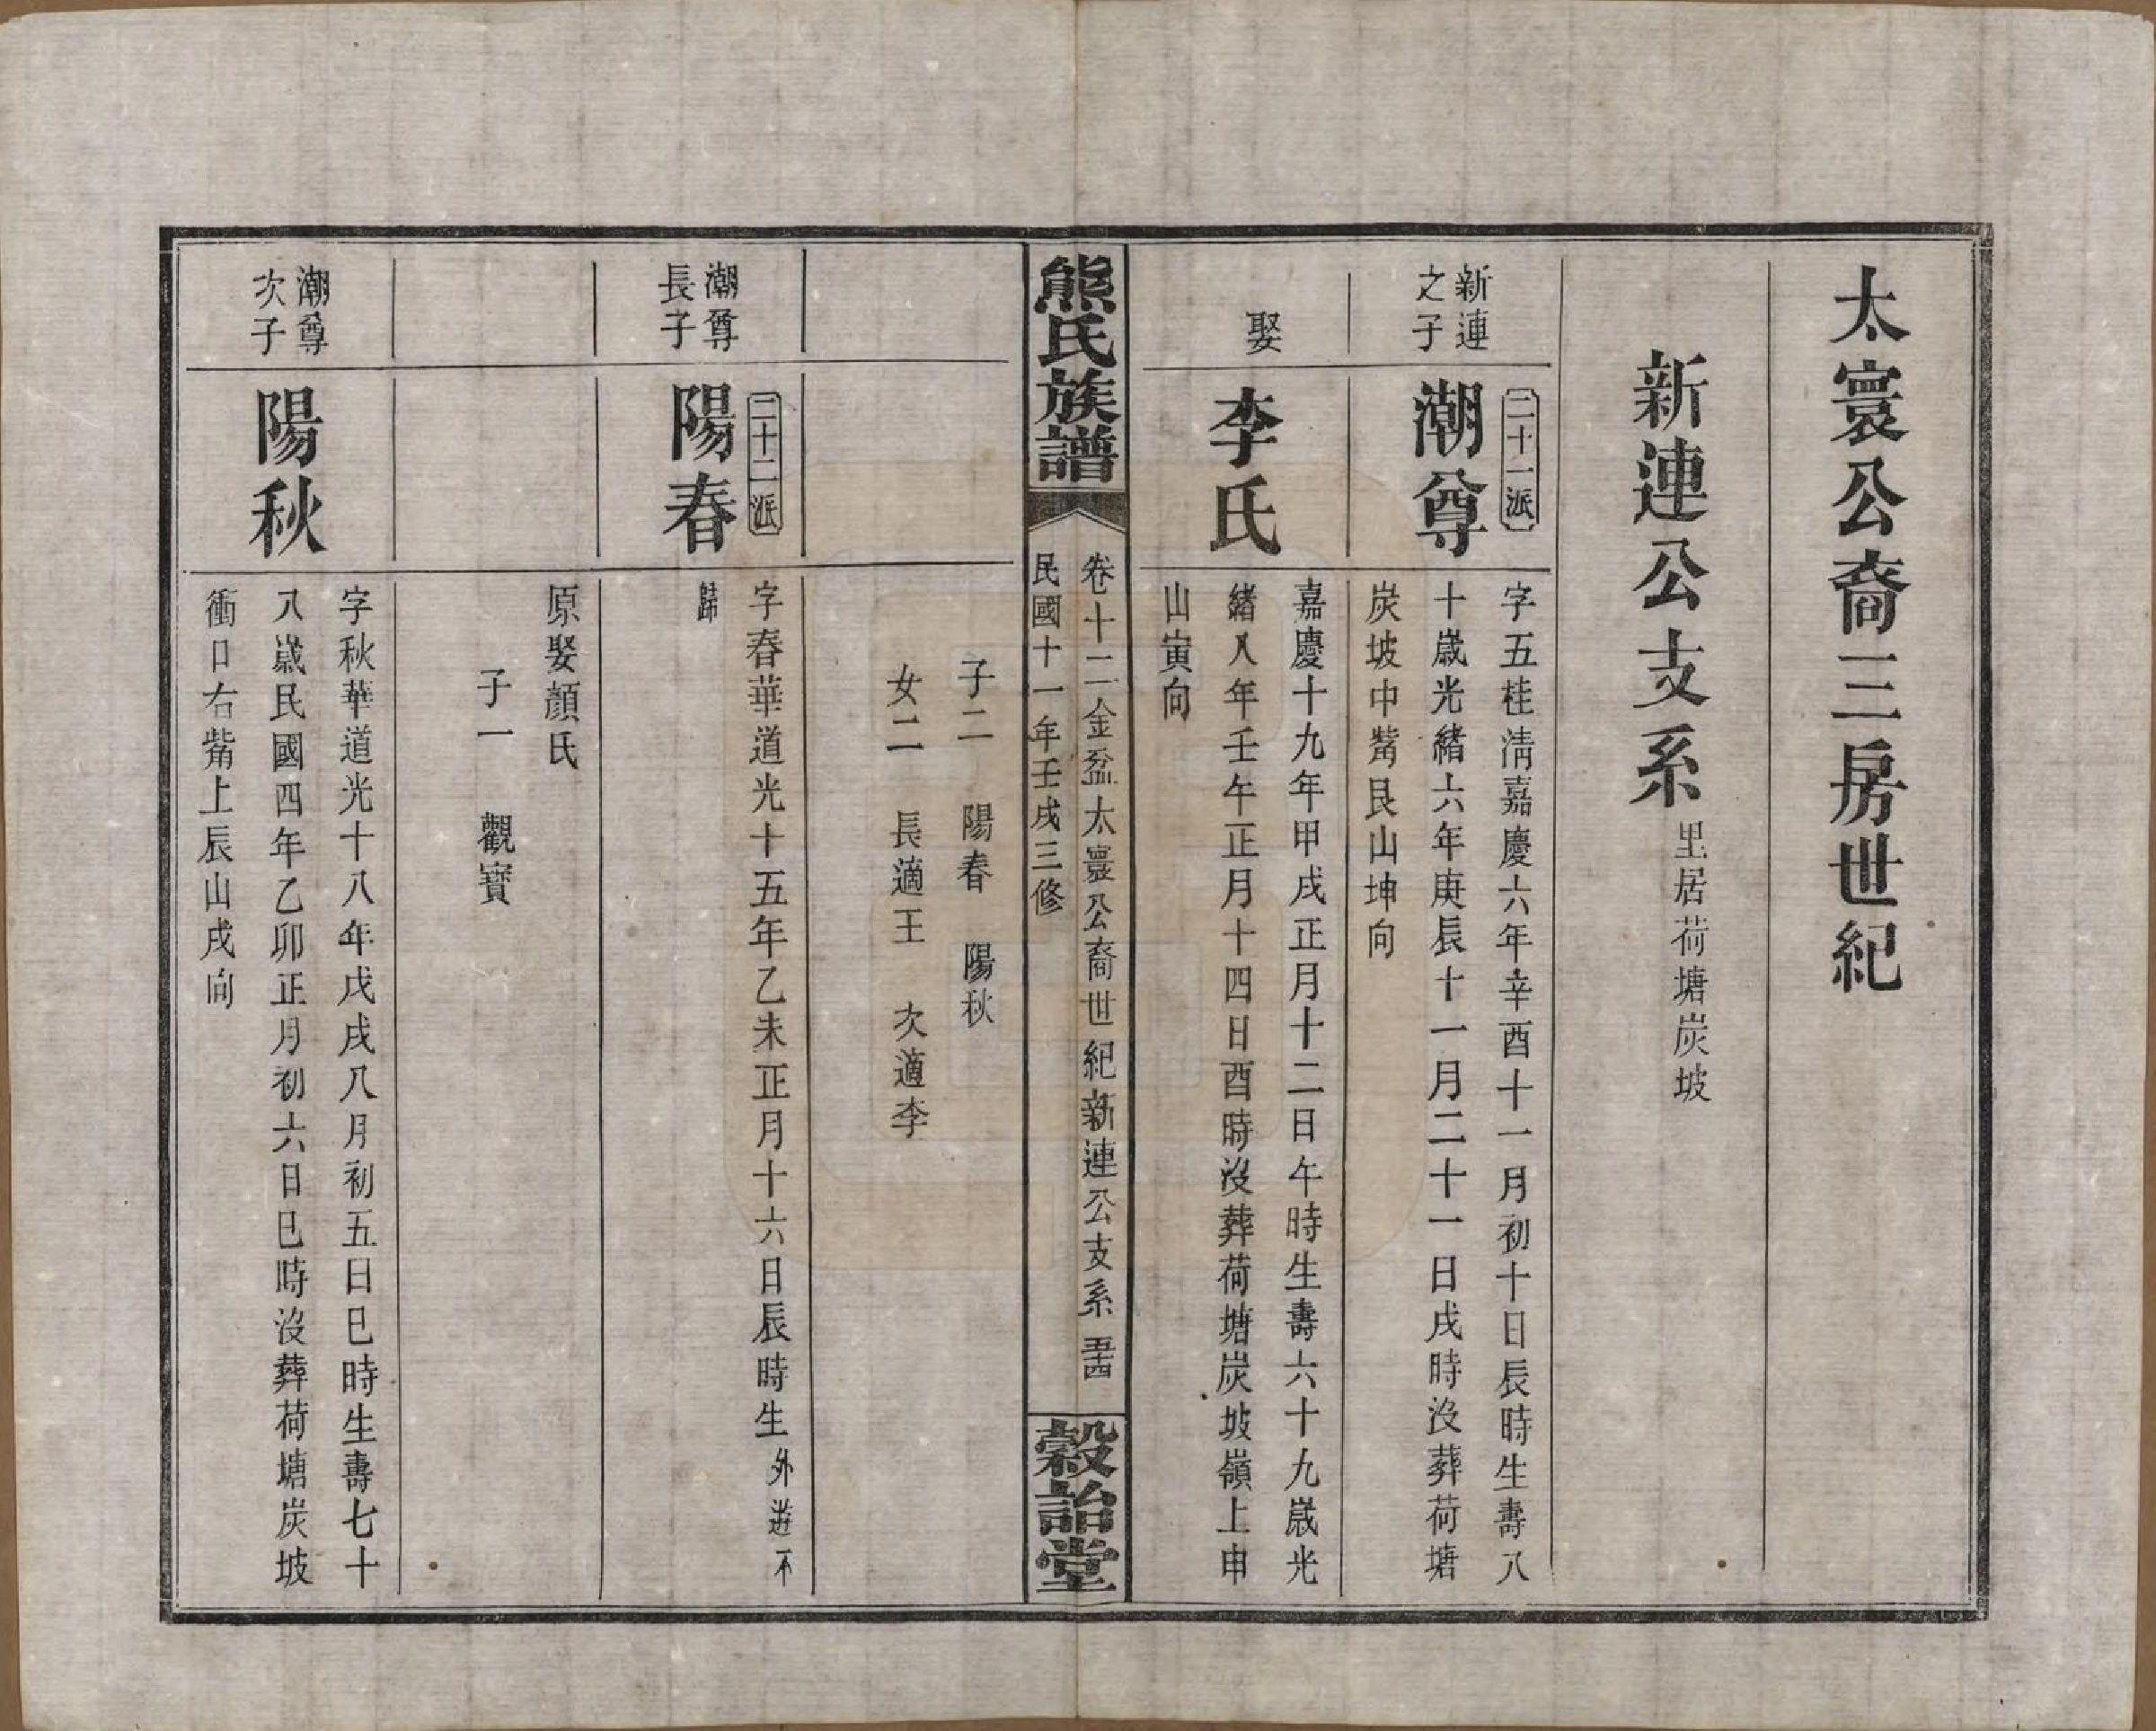 太寰公裔三房世紀
新連公支系 里居荷塘炭坡
新連
之子
二十一派
潮尊
字五桂清嘉慶六年辛酉十一月初十日辰時生壽八
十歲光緒六年庚辰十一月二十一日戌時沒葬荷塘
炭坡中觜艮山坤向
娶
李氏
嘉慶十九年甲戌正月十二日午時生壽六十九歲光
緒八年壬午正月十四日酉時沒葬荷塘炭坡嶺上申
山寅向
熊氏族譜
卷十二金盆太寰公裔世紀新連公支系 五十四
民國十一年壬戌三修
穀詒堂
子二 陽春 陽秋
女二 長適王 次適李
潮尊
長子
二十二派
陽春
字春華道光十五年乙未正月十六日辰時生外遊不
歸
原娶顏氏
子一 觀寶
潮尊
次子
陽秋
字秋華道光十八年戊戌八月初五日巳時生壽七十
八歲民國四年乙卯正月初六日巳時沒葬荷塘炭坡
衝口右觜上辰山戌向